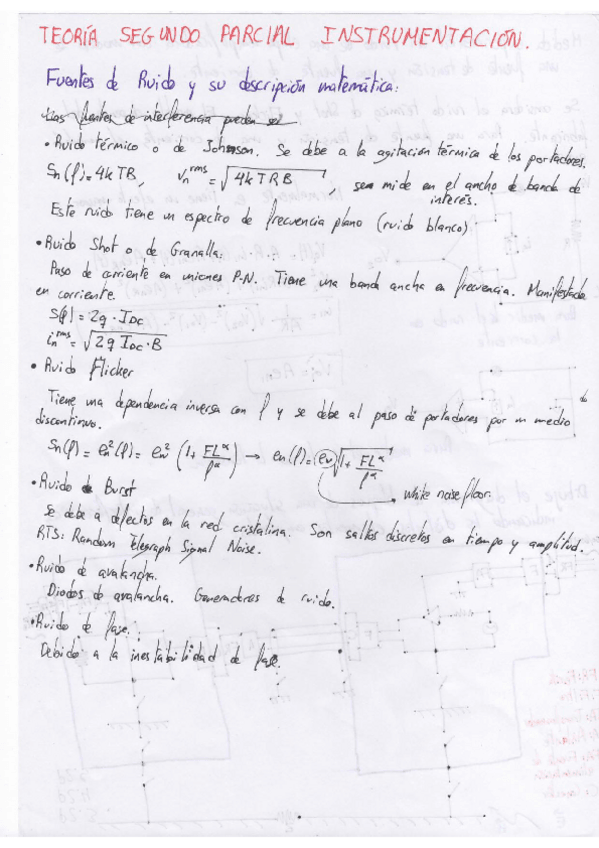 TEORÍA SEGUNDO PARCIAL INSTRUMENTACIÓN.
Fuentes de Ruido y su descripción matemática:
Las fuentes de interferencia pueden ser
• Ruido térmico o de Johnson. Se debe a la agitación térmica de los portadores.
Sn(f) = 4kTB, Vn^rms = √(4kTRB), se mide en el ancho de banda de
interés.
Este ruido tiene un espectro de frecuencia plano (ruido blanco)
• Ruido Shot o de Granalla:
Paso de corriente en uniones P-N. Tiene una banda ancha en frecuencia. Manifestada
en corriente.
S(f) = 2q · I_DC
in^rms = √(2q I_DC · B)
• Ruido Flicker
Tiene una dependencia inversa con f y se debe al paso de portadores por un medio
discontinuo.
Sn(f) = en²(f) = ew² (1 + FL^α/f^α) → en(f) = ew √(1 + FL^α/f^α)
white noise floor.
• Ruido de Burst
Se debe a defectos en la red cristalina. Son saltos discretos en tiempo y amplitud.
RTS: Random Telegraph Signal Noise.
• Ruido de avalancha.
Diodos de avalancha. Generadores de ruido.
• Ruido de fase.
Debido a la inestabilidad de fase.